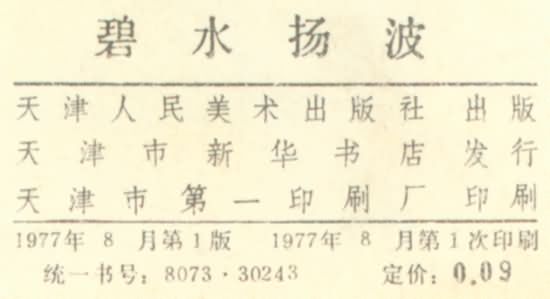 碧水扬波
天津人民美术出版社出版
天津市新华书店发行
天津市第一印刷厂印刷
1977年8月第1版 1977年8月第1次印刷
统一书号：8073·30243 定价：0.09